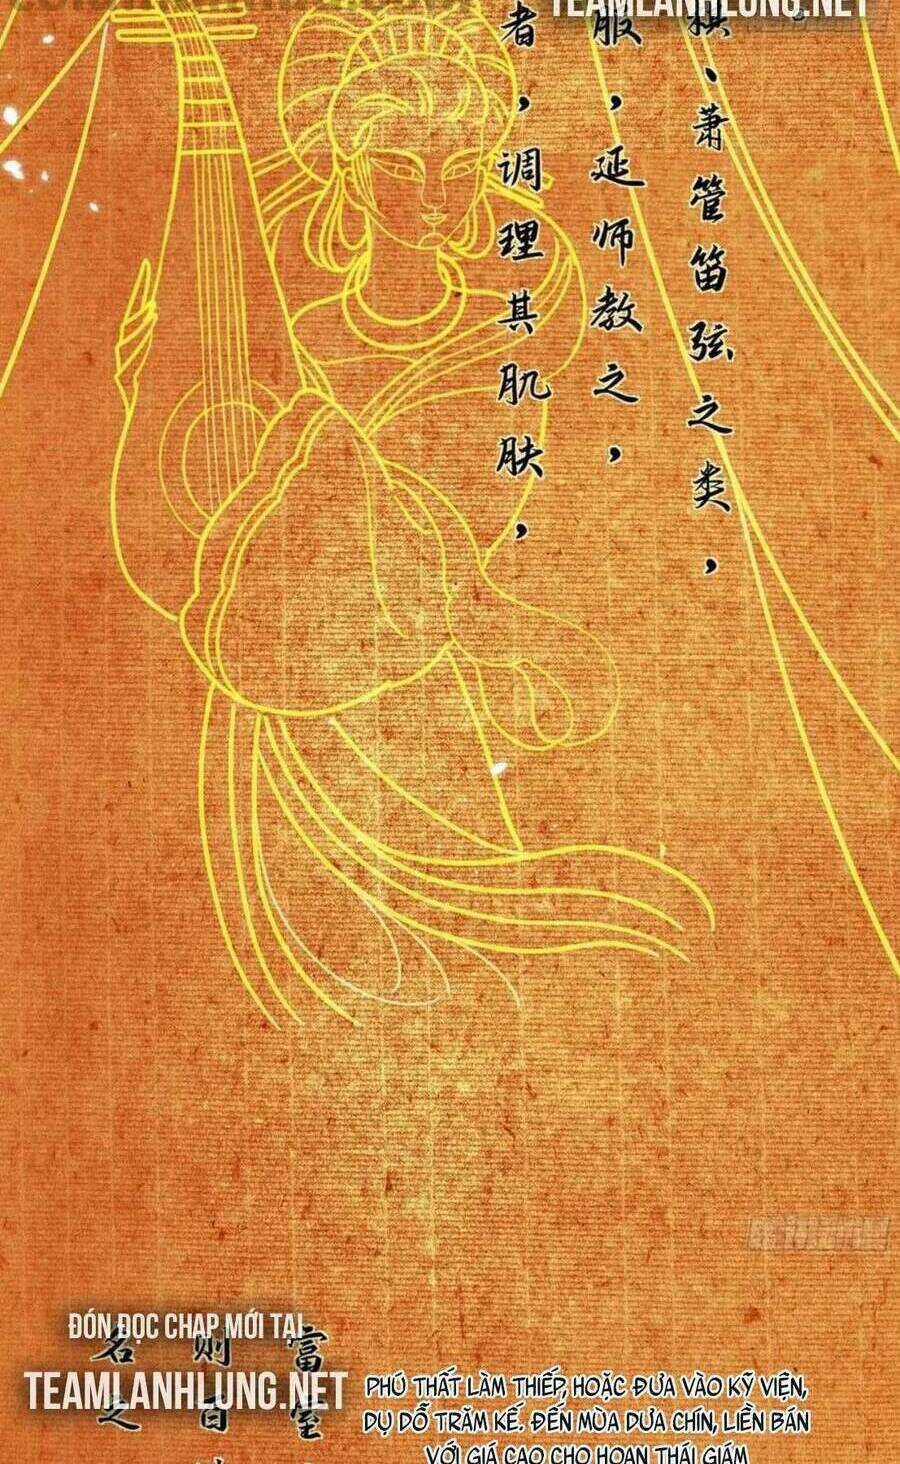 TEAMLANHLUNG.NET
棋、萧管笛弦之类，
服，延师教之，
者，调理其肌肤，
ĐÓN ĐỌC CHAP MỚI TẠI
TEAMLANHLUNG.NET
富室
则百
名之
PHÚ THẤT LÀM THIẾP, HOẶC ĐƯA VÀO KỸ VIỆN,
DỤ DỖ TRĂM KẾ. ĐẾN MÙA DƯA CHÍN, LIỀN BÁN
VỚI GIÁ CAO CHO HOẠN THÁI GIÁM